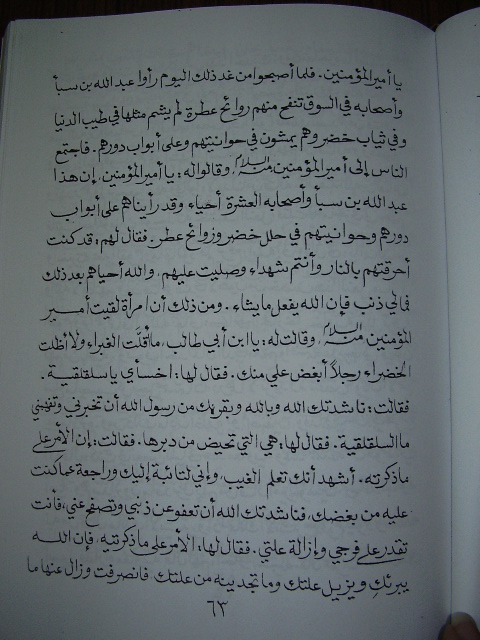 يا أمير المؤمنين. فلما أصبحوا من غد ذلك اليوم رأوا عبد الله بن سبأ
وأصحابه في السوق تنفح منهم روائح عطرة لم يشم مثلها في طيب الدنيا
وفي ثياب خضر وهم يمشون في حوانيتهم وعلى أبواب دورهم. فاجتمع
الناس إلى أمير المؤمنين منه السلام، وقالوا له: يا أمير المؤمنين، إن هذا
عبد الله بن سبأ وأصحابه العشرة أحياء وقد رأيناهم على أبواب
دورهم وحوانيتهم في حلل خضر وزوائح عطر. فقال لهم: قد كنت
أحرقتهم بالنار وأنتم شهداء وصليت عليهم، والله أحياهم بعد ذلك
فمالي ذنب فإن الله يفعل ما يشاء. ومن ذلك أن امرأة لقيت أمير
المؤمنين منه السلام، وقالت له: يا ابن أبي طالب، ما أقلَّت الغبراء ولا أظلت
الخضراء رجلاً أبغض علي منك. فقال لها: اخسأي يا سلقلقية.
فقالت: ناشدتك الله وبالله وبقربك من رسول الله أن تخبرني وتفهمني
ما السلقلقية. فقال لها: هي التي تحيض من دبرها. فقالت: إن الأمر على
ما ذكرته. أشهد أنك تعلم الغيب، وإني لتائبة إليك وراجعة عما كنت
عليه من بغضك، فناشدتك الله أن تعفو عن ذنبي وتصفح عني، فأنت
تقدر على فرجي وإزالة علتي. فقال لها: الأمر على ما ذكرتيه. فإن الله
يبرئك ويزيل علتك وما تجدينه من علتك. فانصرفت وزال عنها ما
٦٣